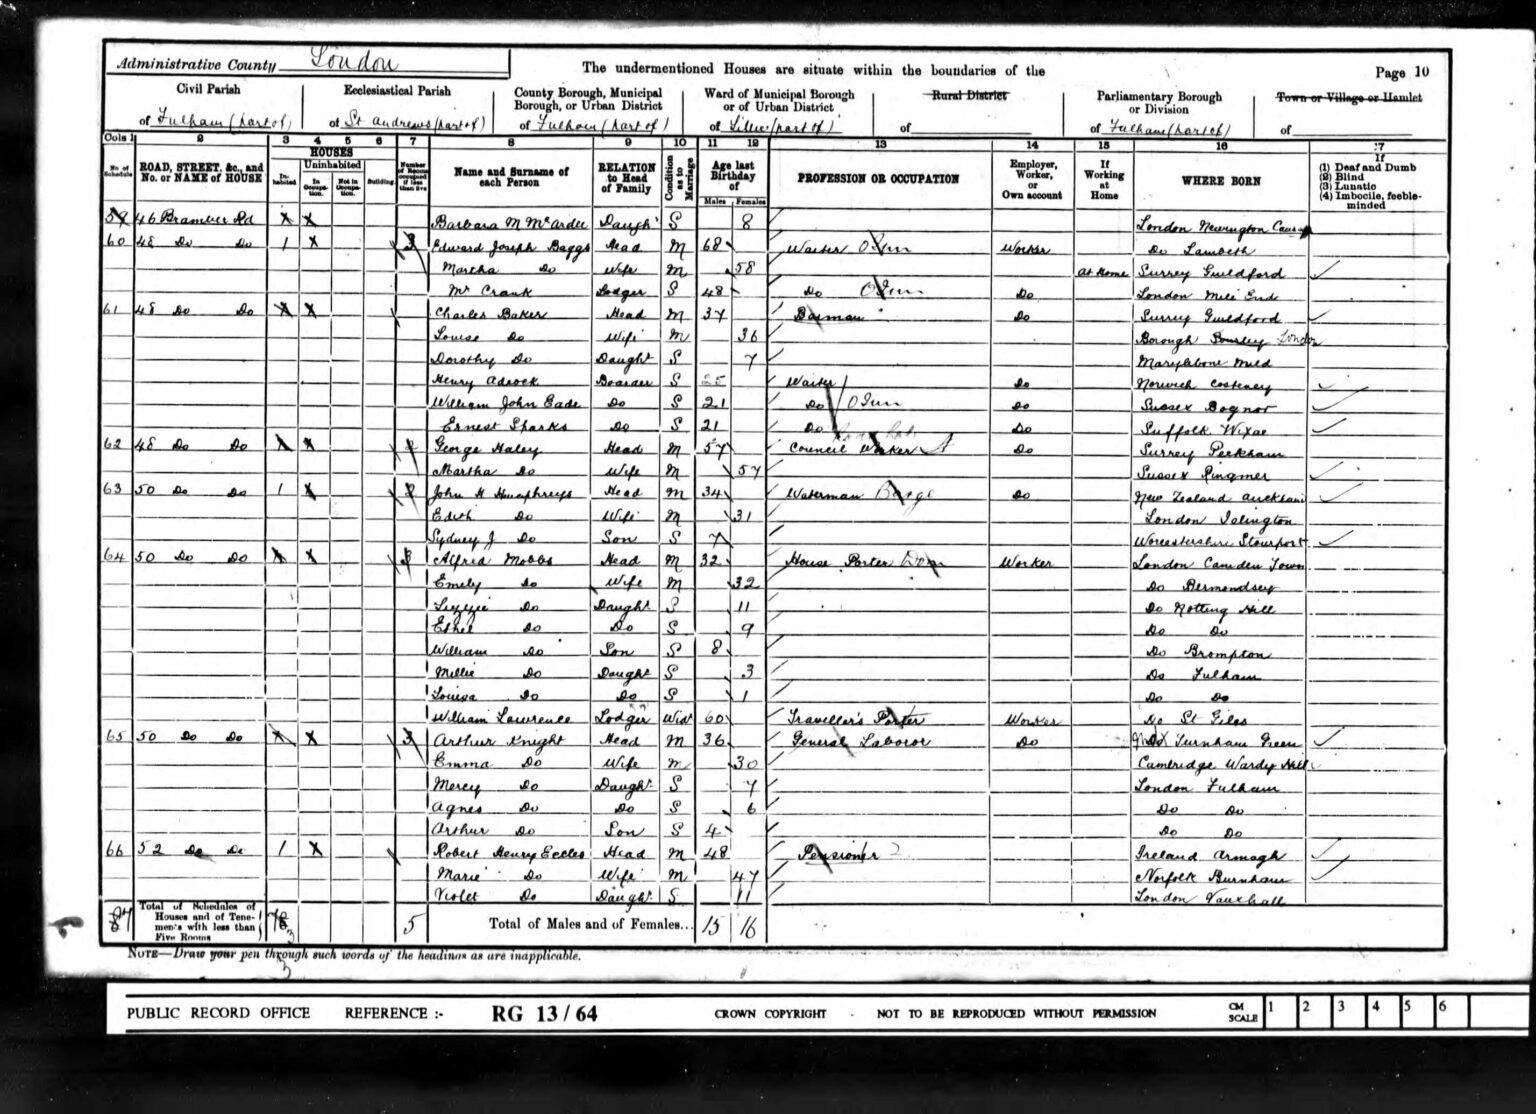 Administrative County London
The undermentioned Houses are situate within the boundaries of the
Page 10
Civil Parish
of Fulham (part of)
Ecclesiastical Parish
of St Andrews (part of)
County Borough, Municipal
Borough, or Urban District
of Fulham (part of)
Ward of Municipal Borough
or of Urban District
of Lillie (part of)
Rural District
of
Parliamentary Borough
or Division
of Fulham (part of)
Town or Village or Hamlet
of
Cols 1 2 3 4 5 6 7 8 9 10 11 12 13 14 15 16 17
No. of Schedule
ROAD, STREET, &c., and
No. or NAME of HOUSE
HOUSES
Inhabited
Uninhabited
In Occupation.
Not in Occupation.
Building
Number of Rooms occupied if less than five
Name and Surname of
each Person
RELATION
to Head
of Family
Condition as to Marriage
Age last
Birthday
of
Males Females
PROFESSION OR OCCUPATION
Employer,
Worker,
or
Own account
If
Working
at
Home
WHERE BORN
If
(1) Deaf and Dumb
(2) Blind
(3) Lunatic
(4) Imbecile, feeble-
minded
59 46 Bramber Rd X X Barbara M McArdle Daugh S 8 London Newington
60 48 Do Do 1 X 3 Edward Joseph Baggs Head M 68 Waiter Worker Do Lambeth
Martha Do Wife M 58 At Home Surrey Guildford
Mr Crank Lodger S 48 Do Do London Mile End
61 48 Do Do X X Charles Baker Head M 37 Barman Do Surrey Guildford
Louise Do Wife M 36 Borough London
Dorothy Do Daught S 7 Marylebone
Henry Adcock Boarder S 25 Waiter Do Norwich Costessey
William John Eade Do S 21 Do Do Sussex Bognor
Ernest Sparks Do S 21 Do Do Suffolk Wixoe
62 48 Do Do X George Haley Head M 57 Council Worker Do Surrey Peckham
Martha Do Wife M 57 Sussex Ringmer
63 50 Do Do 1 X John H Humphreys Head M 34 Waterman Barge Do New Zealand Auckland
Edith Do Wife M 31 London Islington
Sydney J Do Son S 7 Worcestershire Stourport
64 50 Do Do X Alfred Mobbs Head M 32 House Porter Dom Worker London Camden Town
Emely Do Wife M 32 Do Bermondsey
Lizzie Do Daught S 11 Do Notting Hill
Ethel Do Do S 9 Do Do
William Do Son S 8 Do Brompton
Millie Do Daught S 3 Do Fulham
Louisa Do Do S 1 Do Do
William Lawrence Lodger Widr 60 Traveller's Porter Worker Do St Giles
65 50 Do Do X X 3 Arthur Knight Head M 36 General Laborer Do Turnham Green
Emma Do Wife M 30 Cambridge Wardy Hill
Mercy Do Daught S 7 London Fulham
Agnes Do Do S 6 Do Do
Arthur Do Son S 4 Do Do
66 52 Do Do 1 X Robert Henry Eccles Head M 48 Pensioner Ireland Armagh
Marie Do Wife M 47 Norfolk Burnham
Violet Do Daught S 11 London Vauxhall
Total of Schedules of
Houses and of Tene-
ments with less than
Five Rooms
5
Total of Males and of Females... 15 16
NOTE—Draw your pen through such words of the headings as are inapplicable.
PUBLIC RECORD OFFICE REFERENCE :- RG 13 / 64 CROWN COPYRIGHT · NOT TO BE REPRODUCED WITHOUT PERMISSION
CM
SCALE 1 2 3 4 5 6